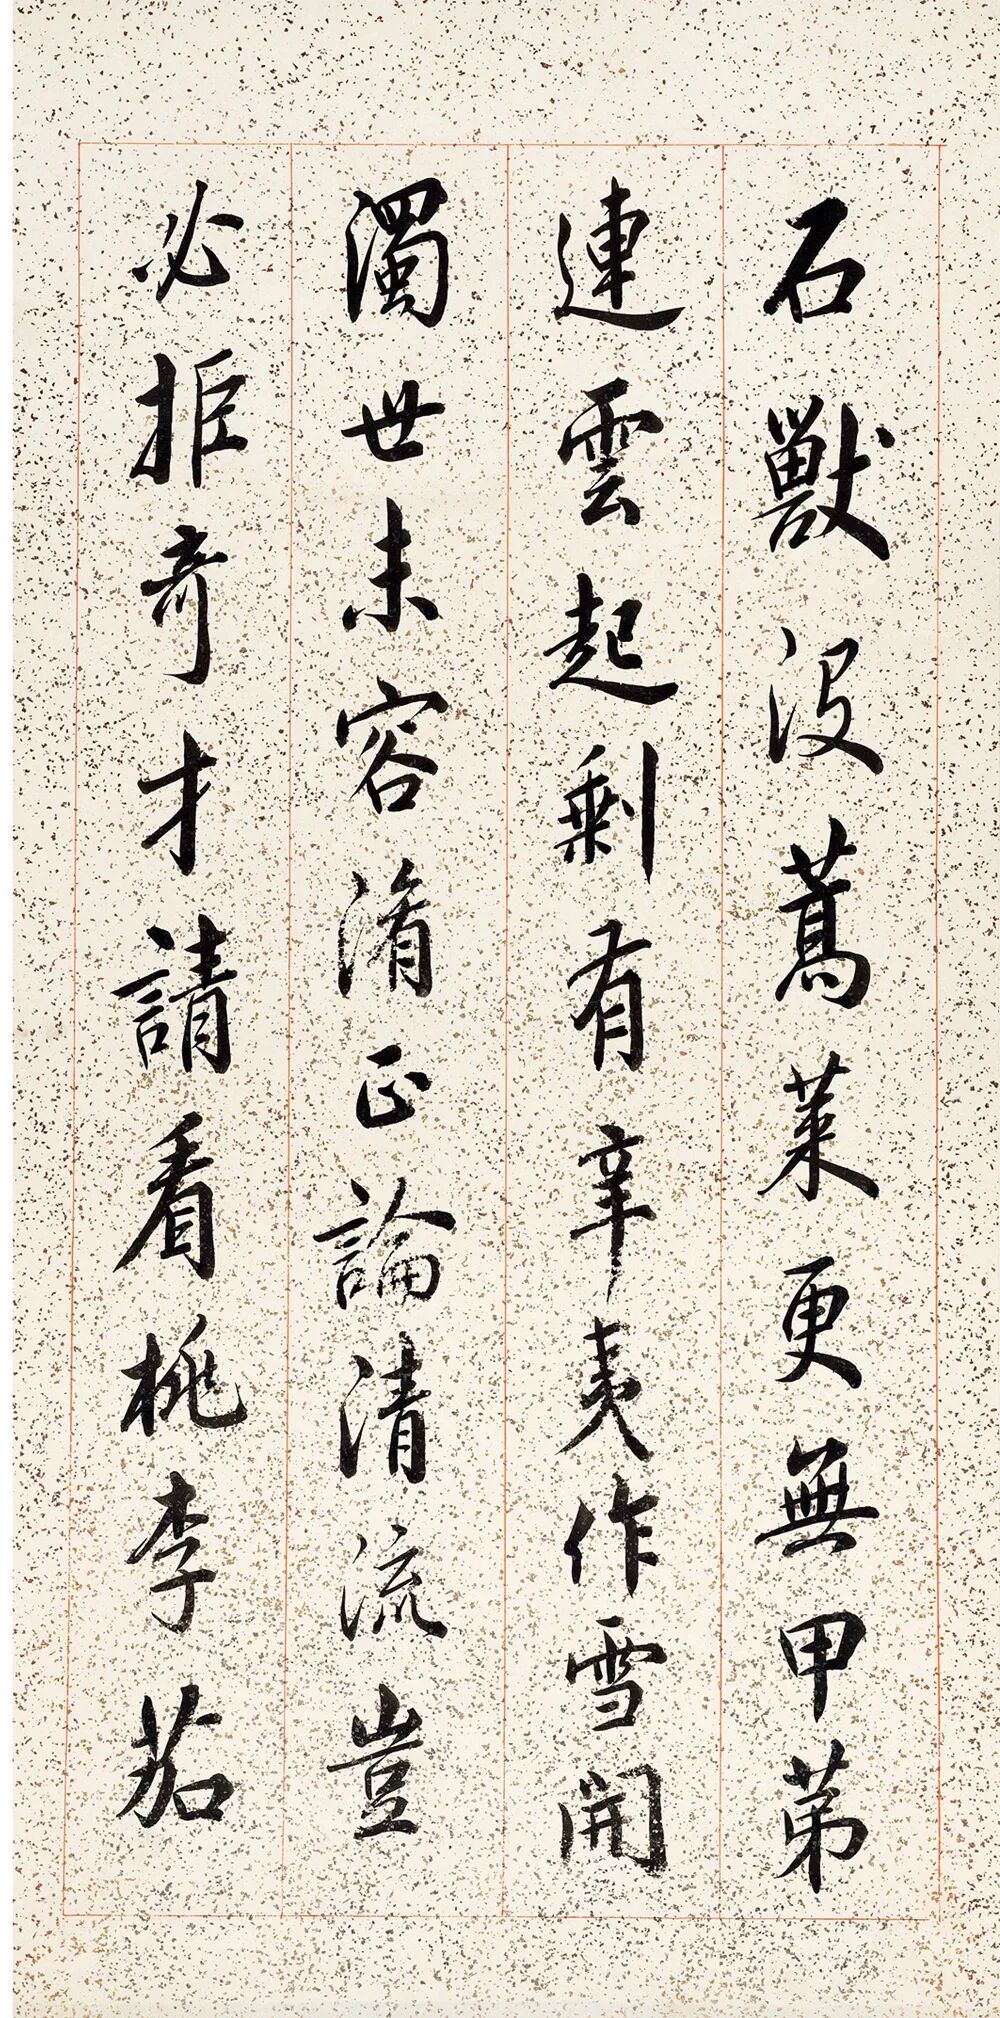 石獸沒蒿萊更無甲第
連雲起剩有辛夷作雪開
濁世未容淆正論清流豈
必拒奇才請看桃李茄